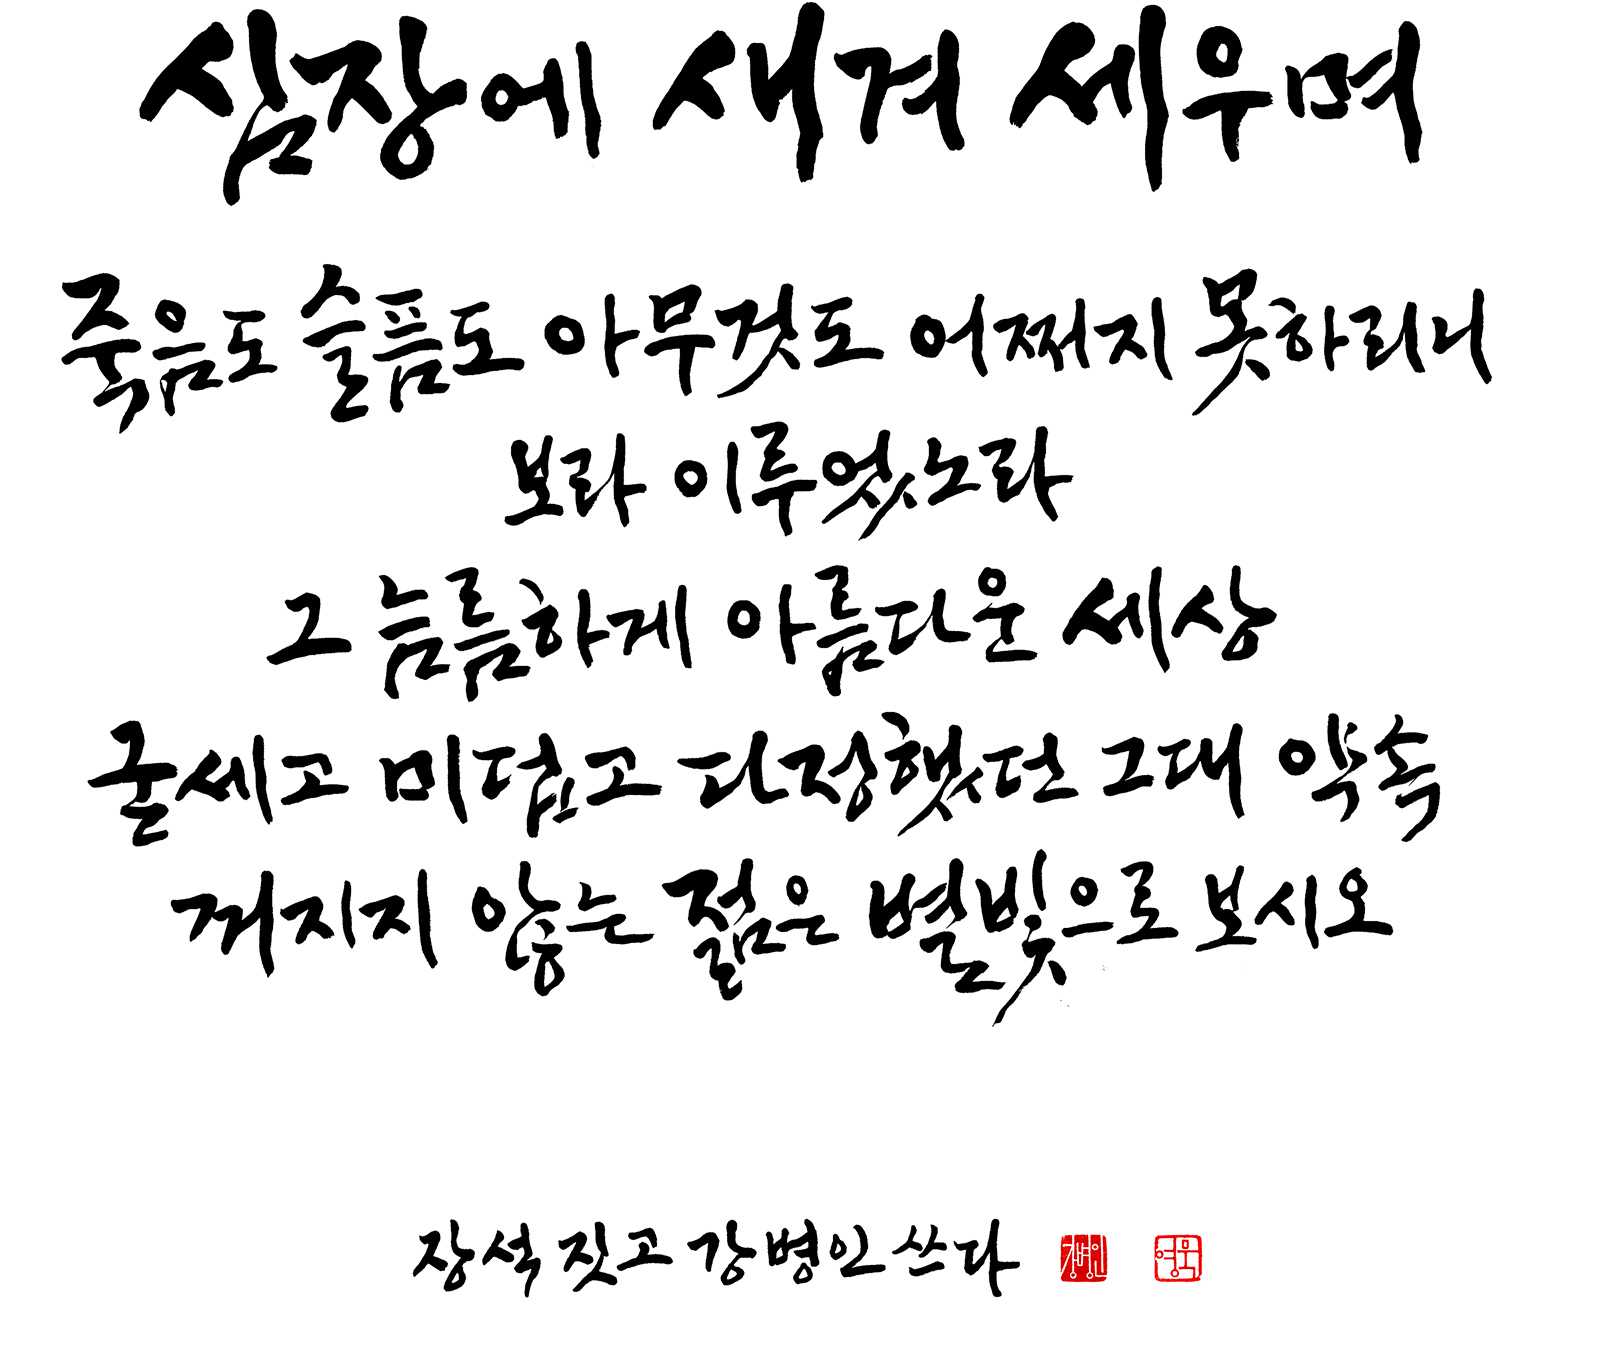 심장에 새겨 세우며
죽음도 슬픔도 아무것도 어쩌지 못하리니
보라 이루었노라
그 늠름하게 아름다운 세상
굳세고 미덥고 다정했던 그대 약속
꺼지지 않는 젊은 별빛으로 보시오
장석 짓고 강병인 쓰다 강병인